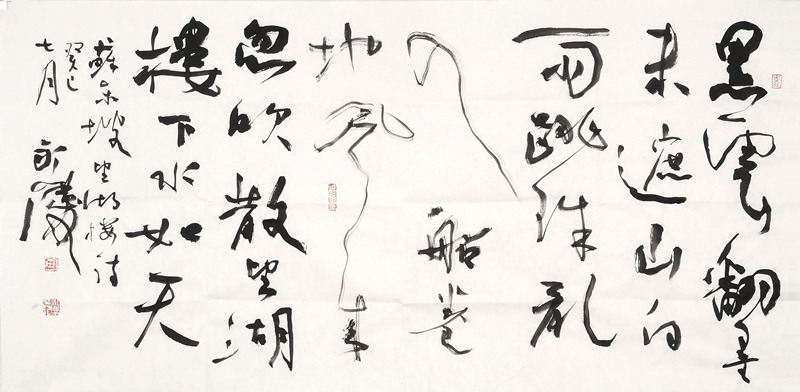 黑雲翻墨
未遮山白
雨跳珠亂
入船卷
地風來
忽吹散望湖
樓下水如天
蘇東坡望湖樓詩
癸巳
七月